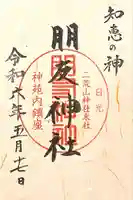 知恵の神
日光
二荒山神社末社
朋友神社
神苑内鎮座
令和六年五月七日